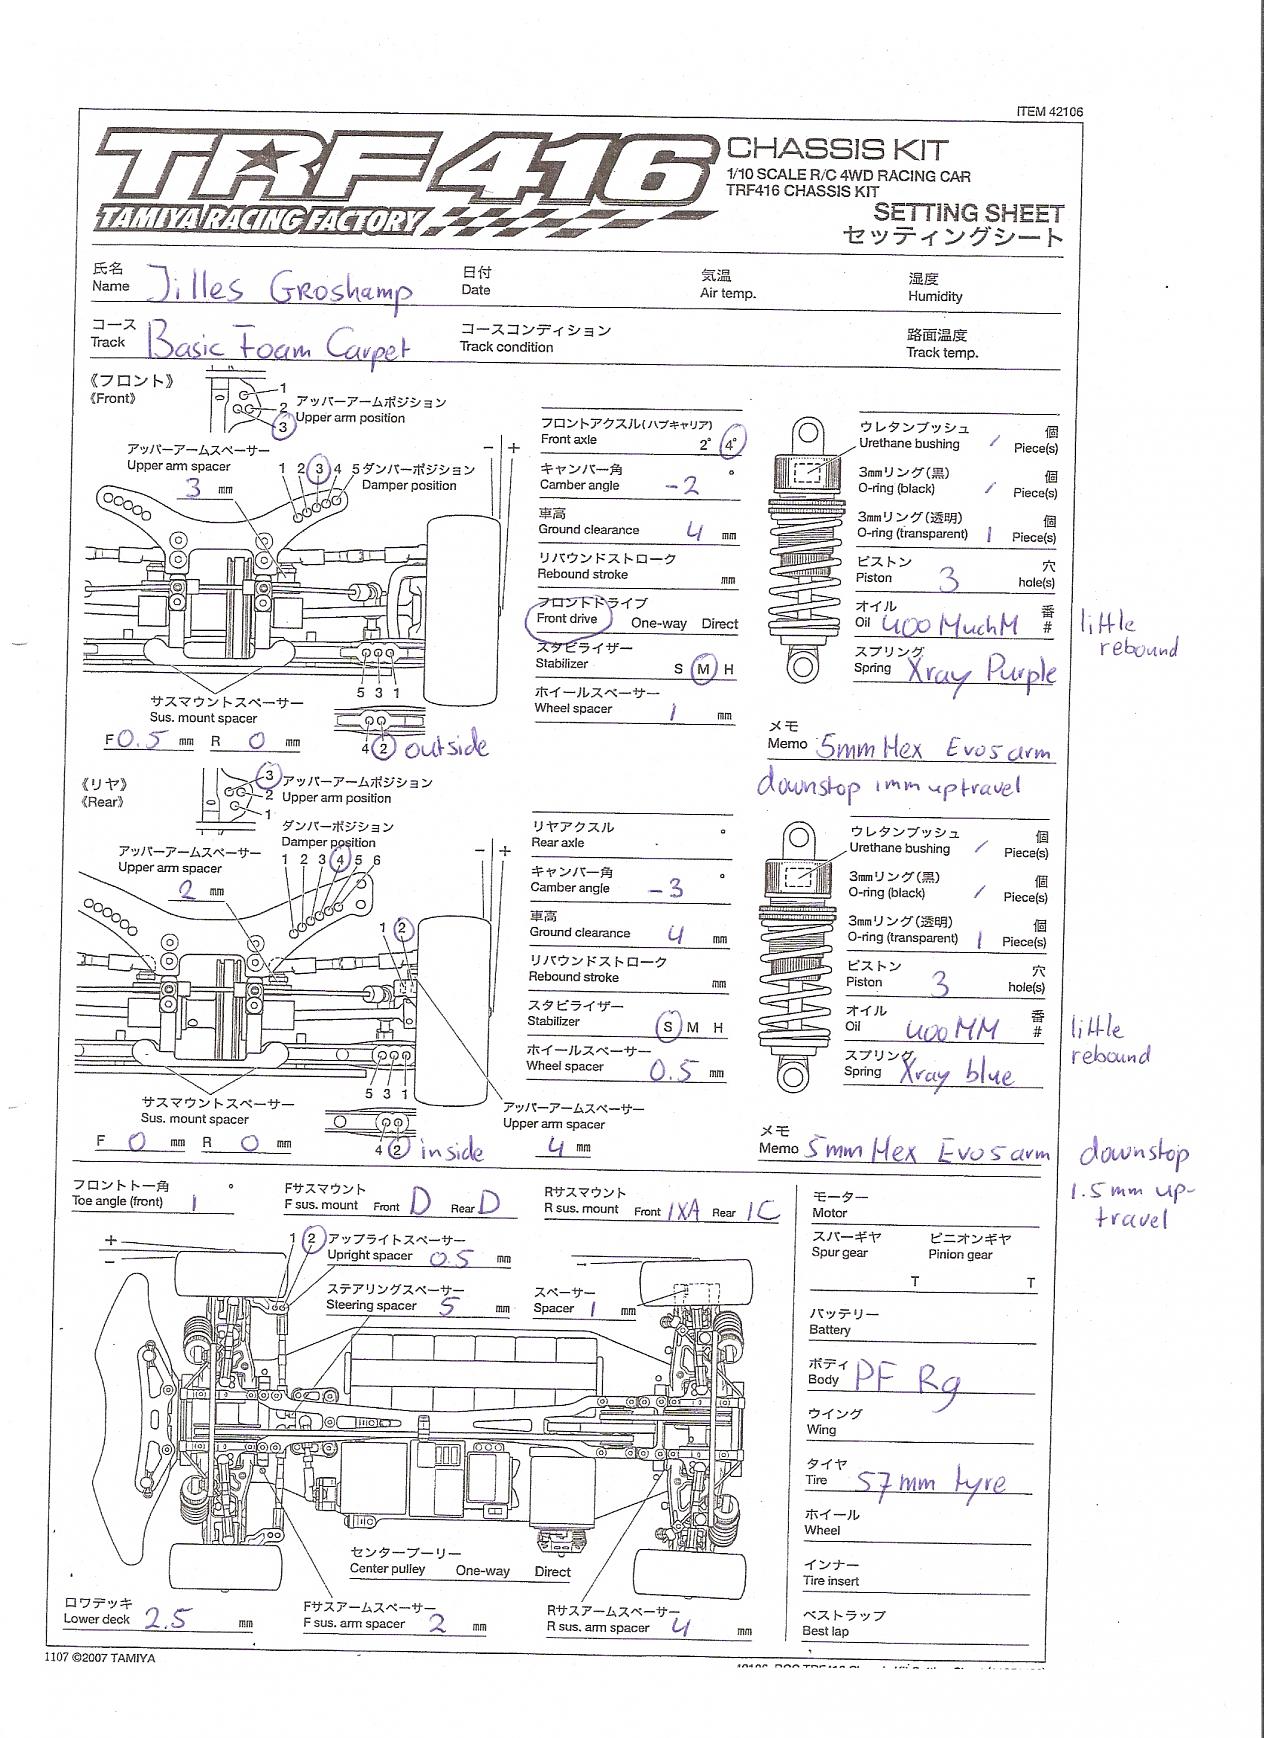 ITEM 42106
TRF416
TAMIYA RACING FACTORY
CHASSIS KIT
1/10 SCALE R/C 4WD RACING CAR
TRF416 CHASSIS KIT
SETTING SHEET
セッティングシート
氏名 日付 気温 湿度
Name Jilles Groskamp Date Air temp. Humidity
コース コースコンディション 路面温度
Track Basic Foam Carpet Track condition Track temp.
《フロント》
《Front》
1
2
3
アッパーアームポジション
Upper arm position
アッパーアームスペーサー
Upper arm spacer
3 mm
1 2 3 4 5 ダンパーポジション
Damper position
− +
5 3 1
サスマウントスペーサー
Sus. mount spacer
F 0.5 mm R 0 mm
4 2 outside
フロントアクスル(ハブキャリア)
Front axle 2° 4°
キャンバー角 °
Camber angle -2
車高
Ground clearance 4 mm
リバウンドストローク
Rebound stroke mm
フロントドライブ
Front drive One-way Direct
スタビライザー
Stabilizer S M H
ホイールスペーサー
Wheel spacer 1 mm
ウレタンブッシュ 個
Urethane bushing / Piece(s)
3mmリング(黒) 個
O-ring (black) / Piece(s)
3mmリング(透明) 個
O-ring (transparent) 1 Piece(s)
ピストン 穴
Piston 3 hole(s)
オイル 番
Oil 400 MuchM #
little
rebound
スプリング
Spring Xray Purple
メモ
Memo 5mm Hex Evo5 arm
downstop 1mm uptravel
《リヤ》
《Rear》
3
2
1
アッパーアームポジション
Upper arm position
ダンパーポジション
Damper position
1 2 3 4 5 6
アッパーアームスペーサー
Upper arm spacer
2 mm
− +
1 2
5 3 1
サスマウントスペーサー
Sus. mount spacer
F 0 mm R 0 mm
4 2 inside
リヤアクスル °
Rear axle
キャンバー角 °
Camber angle -3
車高
Ground clearance 4 mm
リバウンドストローク
Rebound stroke mm
スタビライザー
Stabilizer S M H
ホイールスペーサー
Wheel spacer 0.5 mm
アッパーアームスペーサー
Upper arm spacer
4 mm
ウレタンブッシュ 個
Urethane bushing / Piece(s)
3mmリング(黒) 個
O-ring (black) / Piece(s)
3mmリング(透明) 個
O-ring (transparent) 1 Piece(s)
ピストン 穴
Piston 3 hole(s)
オイル 番
Oil 400 MM #
little
rebound
スプリング
Spring Xray blue
メモ
Memo 5mm Hex Evo5 arm
downstop
1.5mm up-
travel
フロントトー角 °
Toe angle (front) 1
Fサスマウント
F sus. mount Front D Rear D
Rサスマウント
R sus. mount Front 1XA Rear 1C
+
−
1 2 アップライトスペーサー
Upright spacer 0.5 mm
ステアリングスペーサー
Steering spacer 5 mm
− スペーサー
Spacer 1 mm
センタープーリー
Center pulley One-way Direct
ロワデッキ
Lower deck 2.5 mm
Fサスアームスペーサー
F sus. arm spacer 2 mm
Rサスアームスペーサー
R sus. arm spacer 4 mm
モーター
Motor
スパーギヤ ピニオンギヤ
Spur gear Pinion gear
T T
バッテリー
Battery
ボディ
Body PF Rg
ウイング
Wing
タイヤ
Tire 57mm tyre
ホイール
Wheel
インナー
Tire insert
ベストラップ
Best lap
1107 ©2007 TAMIYA